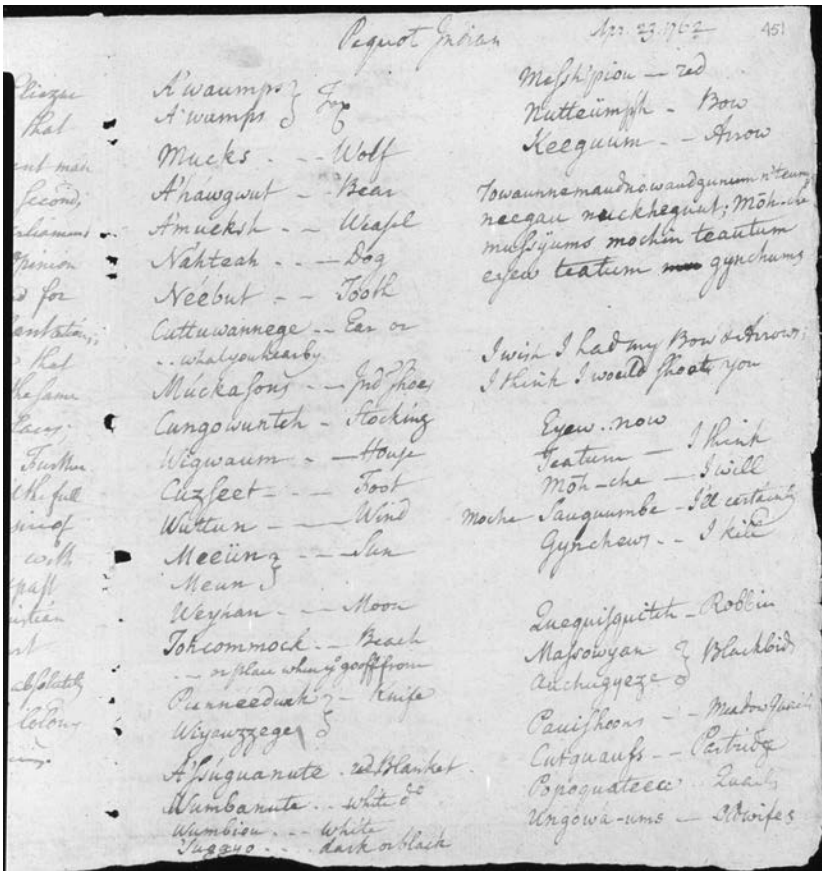 Pequot Indian Apr. 23. 1762 451
Eliezar
that
ent man
Second;
Opinion
d for
that
the same
Places;
Further
d the full
with
past
istian
absolutely
Colony
A'waumps } Fox
A'wamps }
Mucks . - - Wolf
A'hawgwut - - Bear
A'mucksh - - Weasel
Náhteah - . - Dog
Néebut - - Tooth
Cuttuwannege - - Ear or
- . what you hear by
Muckasons - - Ind. Shoes
Cungowuntch - Stocking
Wigwaum - - House
Cuzseet - - - Foot
Wuttun - - - Wind
Meeün } - - Sun
Meun }
Weyhan - - - Moon
Tohcommock - - Beach
- - or place where ye go off from
Punneeduak } - Knife
Wiyauzzege }
A'ssúquanute . red Blanket
Wumbanute . . white do
Wumbiou . . . white
Suggyo . . . dark or black
Messhpiou — red
Nutteümpsh - Bow
Keeguum - - Arrow
Towaunnemaudnowaudgunum n'teum
neegau nuckhegunt; Mōh-che
mussyums mochin teautum
eyew teatum gynchums
I wish I had my Bow & Arrows;
I think I would shoot you
Eyew . . now
Teatum — I think
Mōh-che — I will
Moche Sauquumbe - I'll certainly
Gynchews - - I kill
Quequisquitch - Robbin
Massowyan } Blackbird
Auchugyeze }
Pauishoons - - Meadow
Cutquaufs - - Partridge
Popoquateece Quails
Ungowa-ums — Oldwifes